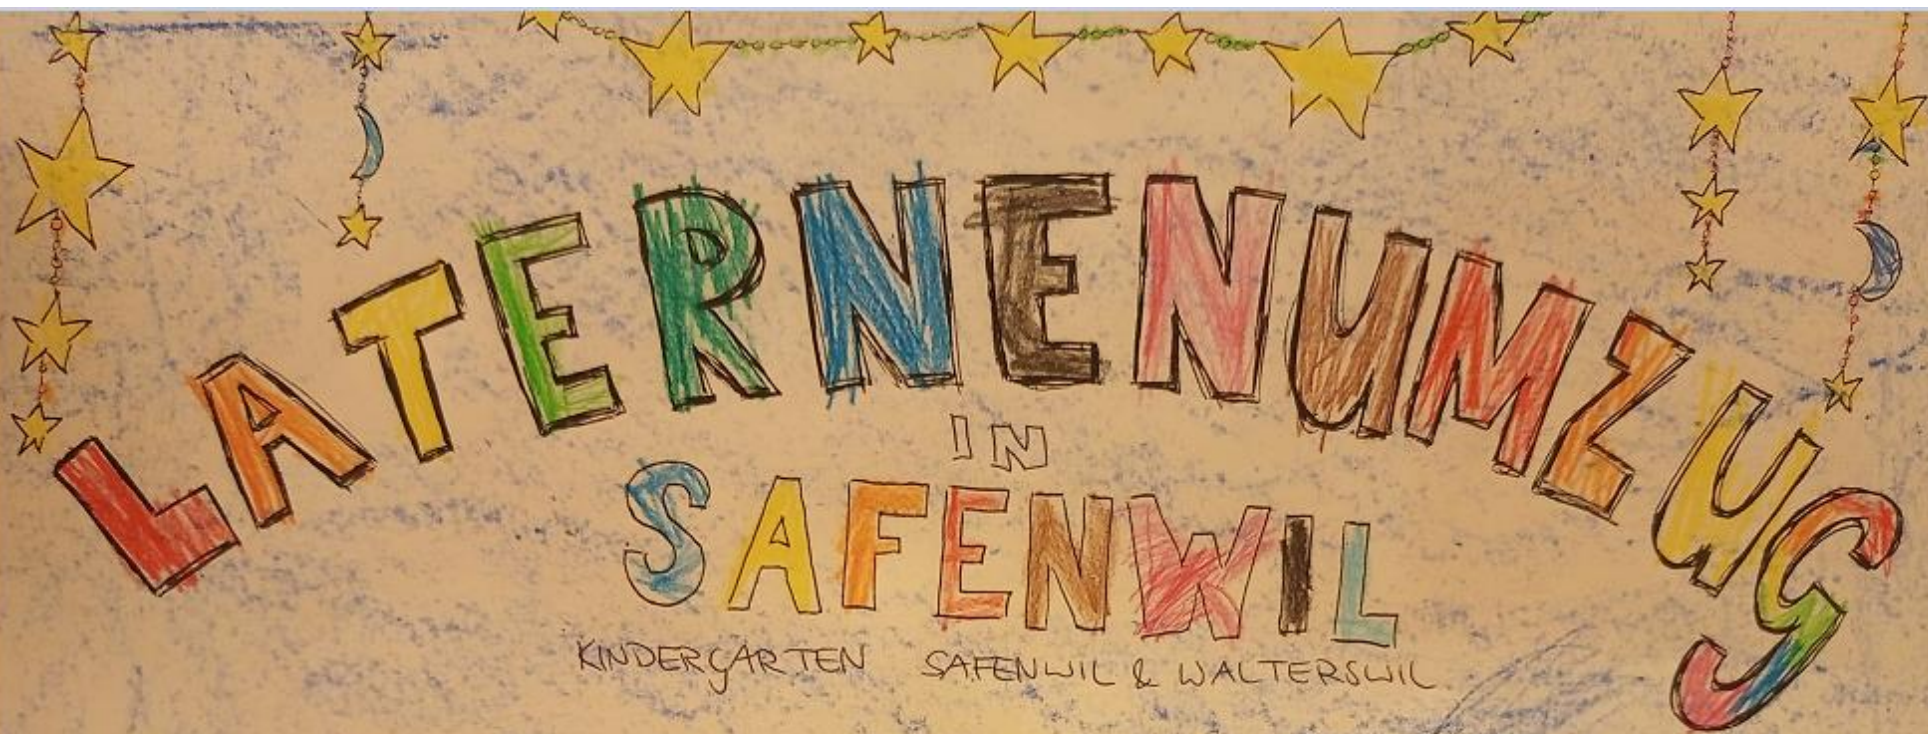 LATERNENUMZUG
IN
SAFENWIL
KINDERGARTEN SAFENWIL & WALTERSWIL